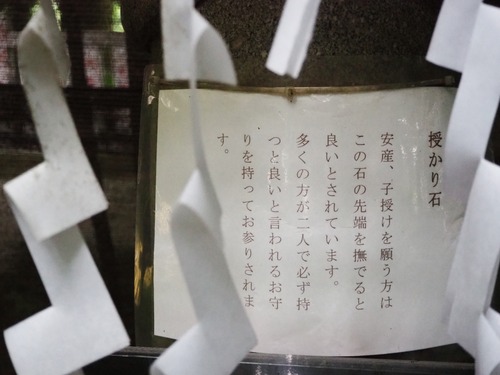 授かり石
安産、子授けを願う方は
この石の先端を撫でると
良いとされています。
多くの方が二人で必ず持
つと良いと言われるお守
りを持ってお参りされま
す。